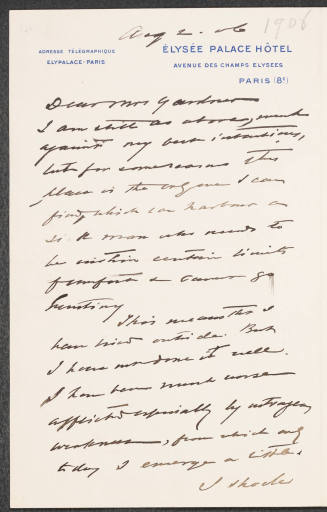 Aug 2. 06
1906
ADRESSE TÉLÉGRAPHIQUE
ELYPALACE-PARIS
ÉLYSÉE PALACE HÔTEL
AVENUE DES CHAMPS ELYSÉES
PARIS (8e)
Dear Mrs Gardner
I am still as above, much
against my best intentions,
but for some reason this
place is the only one I can
find which can harbour a
sick man who needs to
be within certain limits
of comfort & cannot go
hunting
This means that I
have tried outside. But
I have not done it well.
I have been much worse
afflicted especially by
weakness, from which only
today I emerge a little.
I should